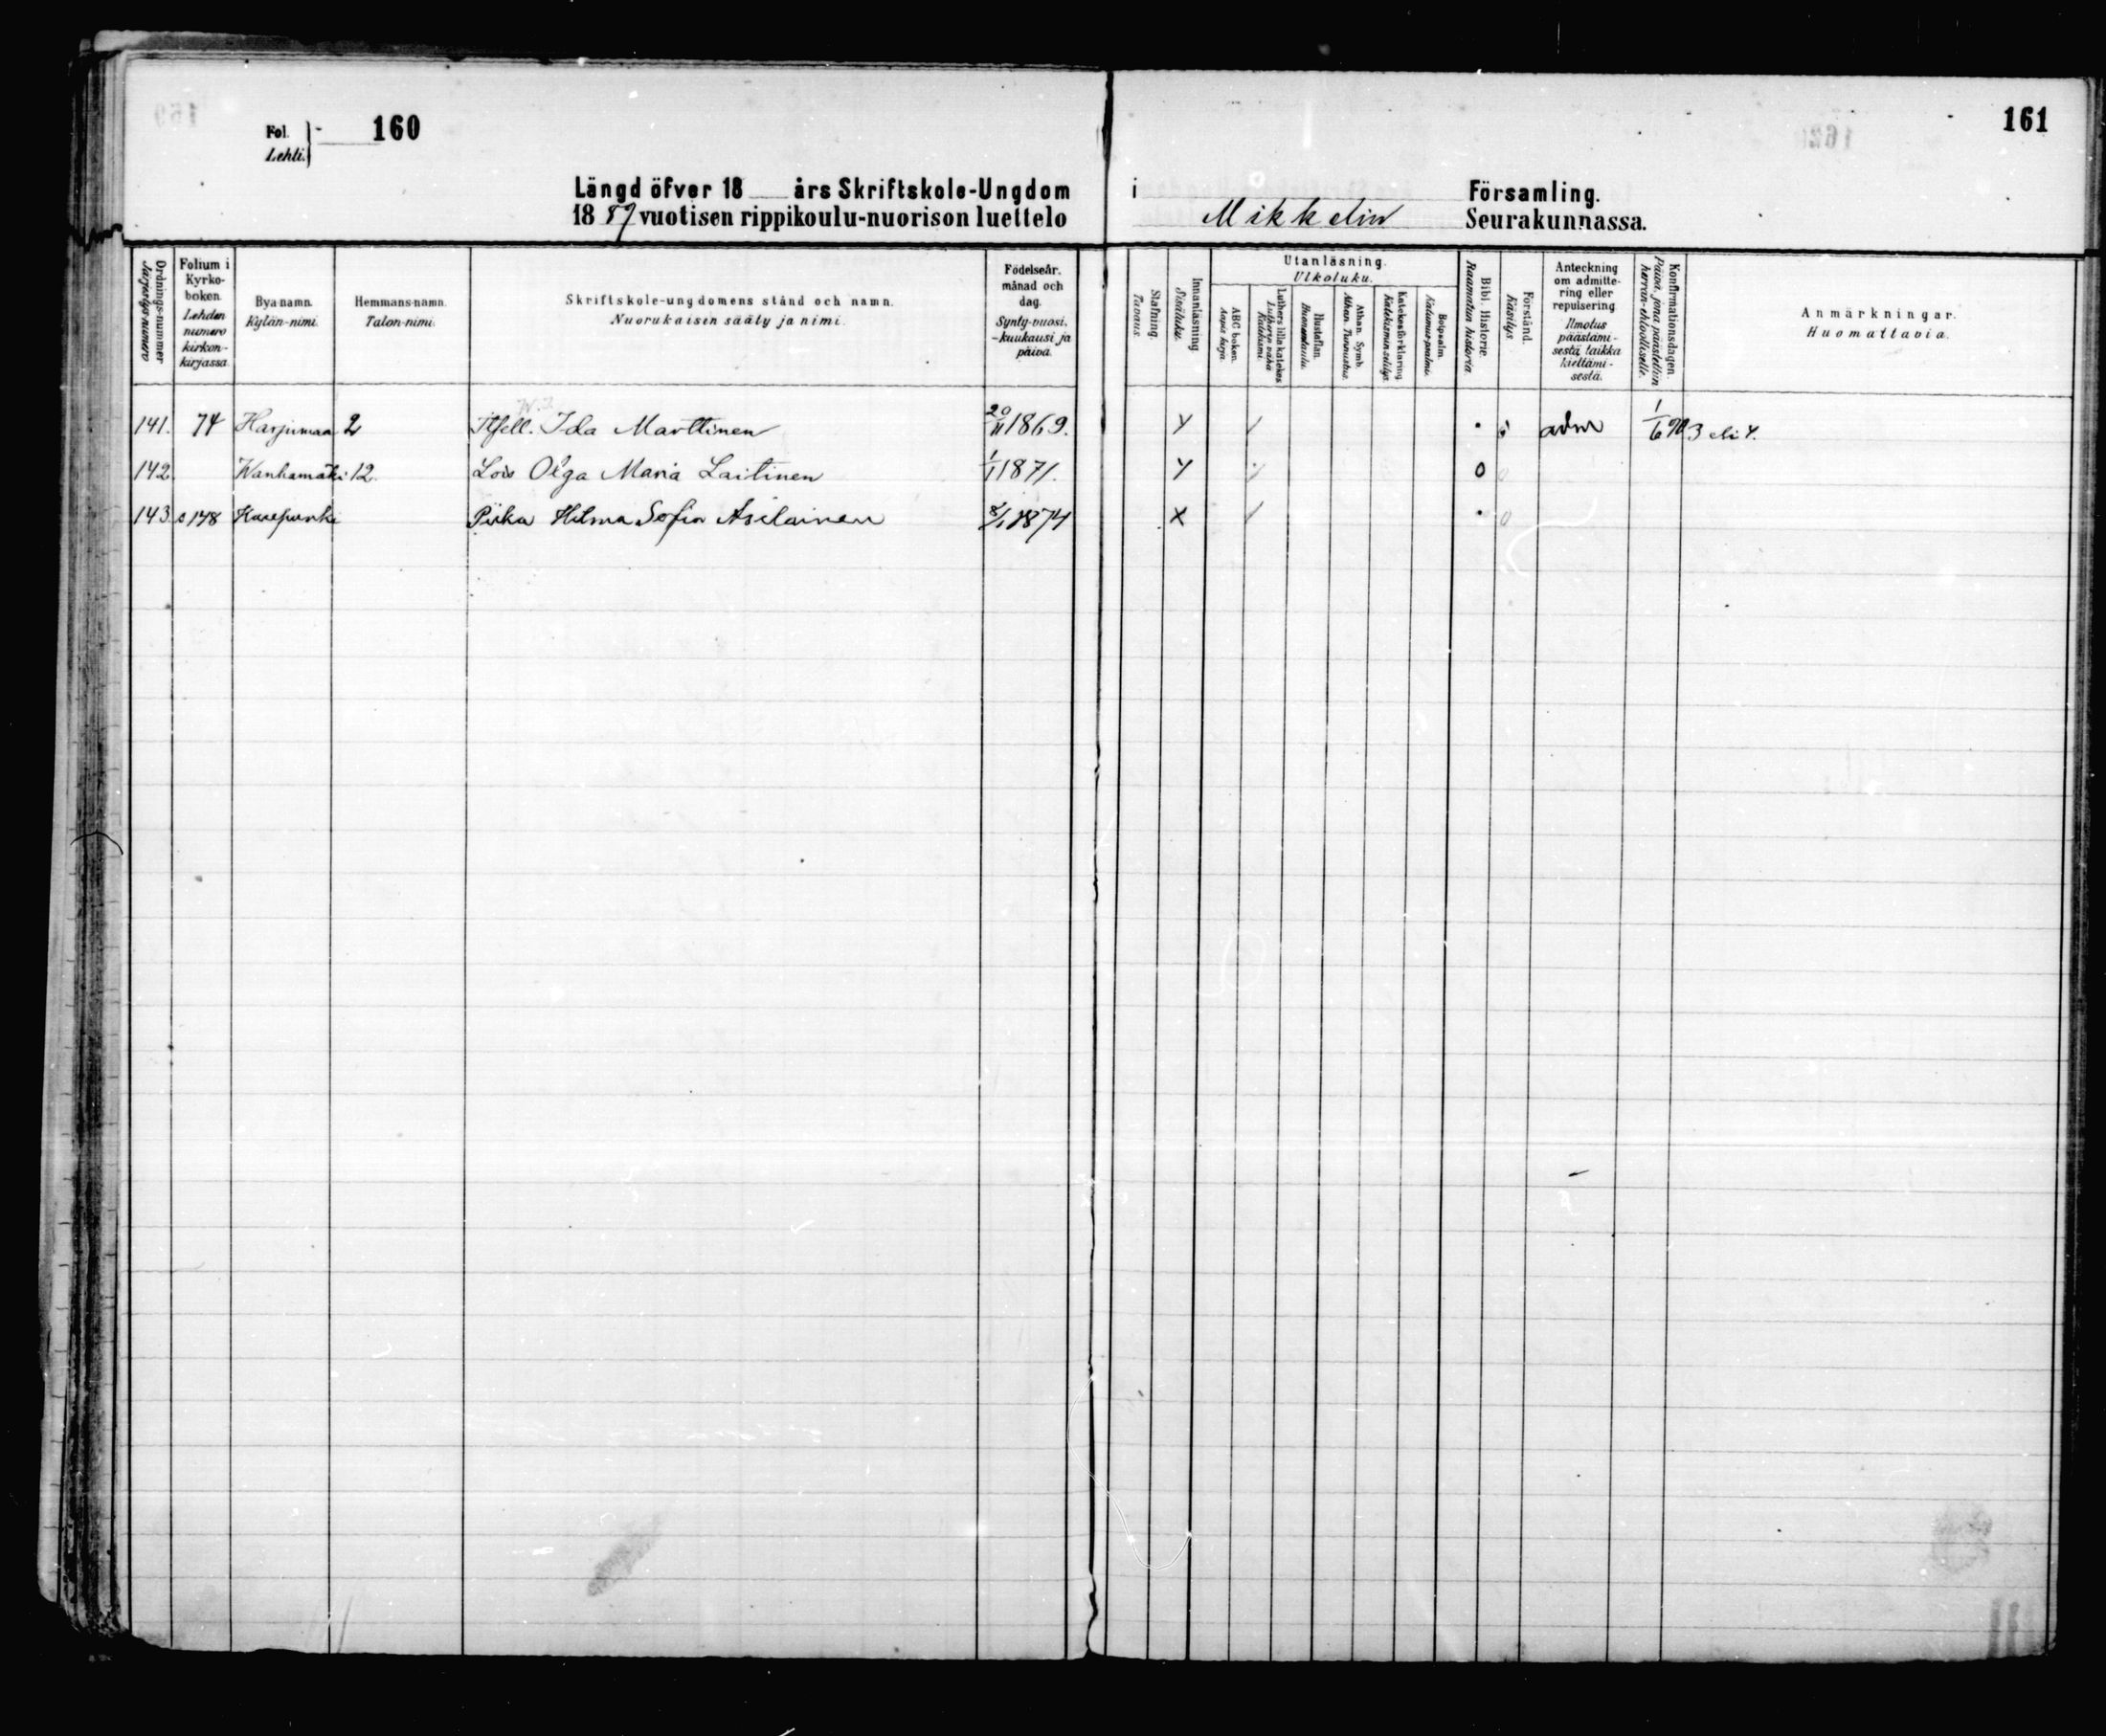 Fol. 160
Lehti.
161
Längd öfver 18 års Skriftskole-Ungdom i Församling.
1889 vuotisen rippikoulu-nuorison luettelo Mikkelin Seurakunnassa.
Ordnings-nummer
Järjestys-numero
Folium i Kyrko-boken.
Lehden numero kirkon-kirjassa.
Bya-namn.
Kylän-nimi.
Hemmans-namn.
Talon-nimi.
Skriftskole-ungdomens stånd och namn.
Nuorukaisen sääty ja nimi.
Födelseår, månad och dag.
Synty-vuosi, -kuukausi ja päivä.
Stafning.
Tavaus.
Innanläsning
Sisäluku.
Utanläsning.
Ulkoluku.
ABC boken.
Aapis kirja.
Luthers lilla katekes
Lutherin vähä Katekismi.
Hustaflan.
Huoneentaulu.
Athan. Symb.
Athan. Tunnustus.
Katekesförklaring
Katekismin selitys.
Botpsalm.
Katumus-psalmi.
Bibl. Historie.
Raamatun historia.
Förstånd.
Käsitys.
Anteckning om admitte-ring eller repulsering
Ilmotus päästämi-sestä taikka kieltämi-sestä.
Konfirmationsdagen.
Päivä, jona päästettiin herran-ehtoolliselle.
Anmärkningar.
Huomattavia.
141. 74 Harjumaa 2 Itsell. Ida Marttinen 20/11 1869. adm 1/6 90 3 eli 4.
142. Wanhamäki 12. Lois Olga Maria Laitinen 1/1 1871. o
143 s 148 Piika Hilma Sofia Asilainen 8/1 1874 x